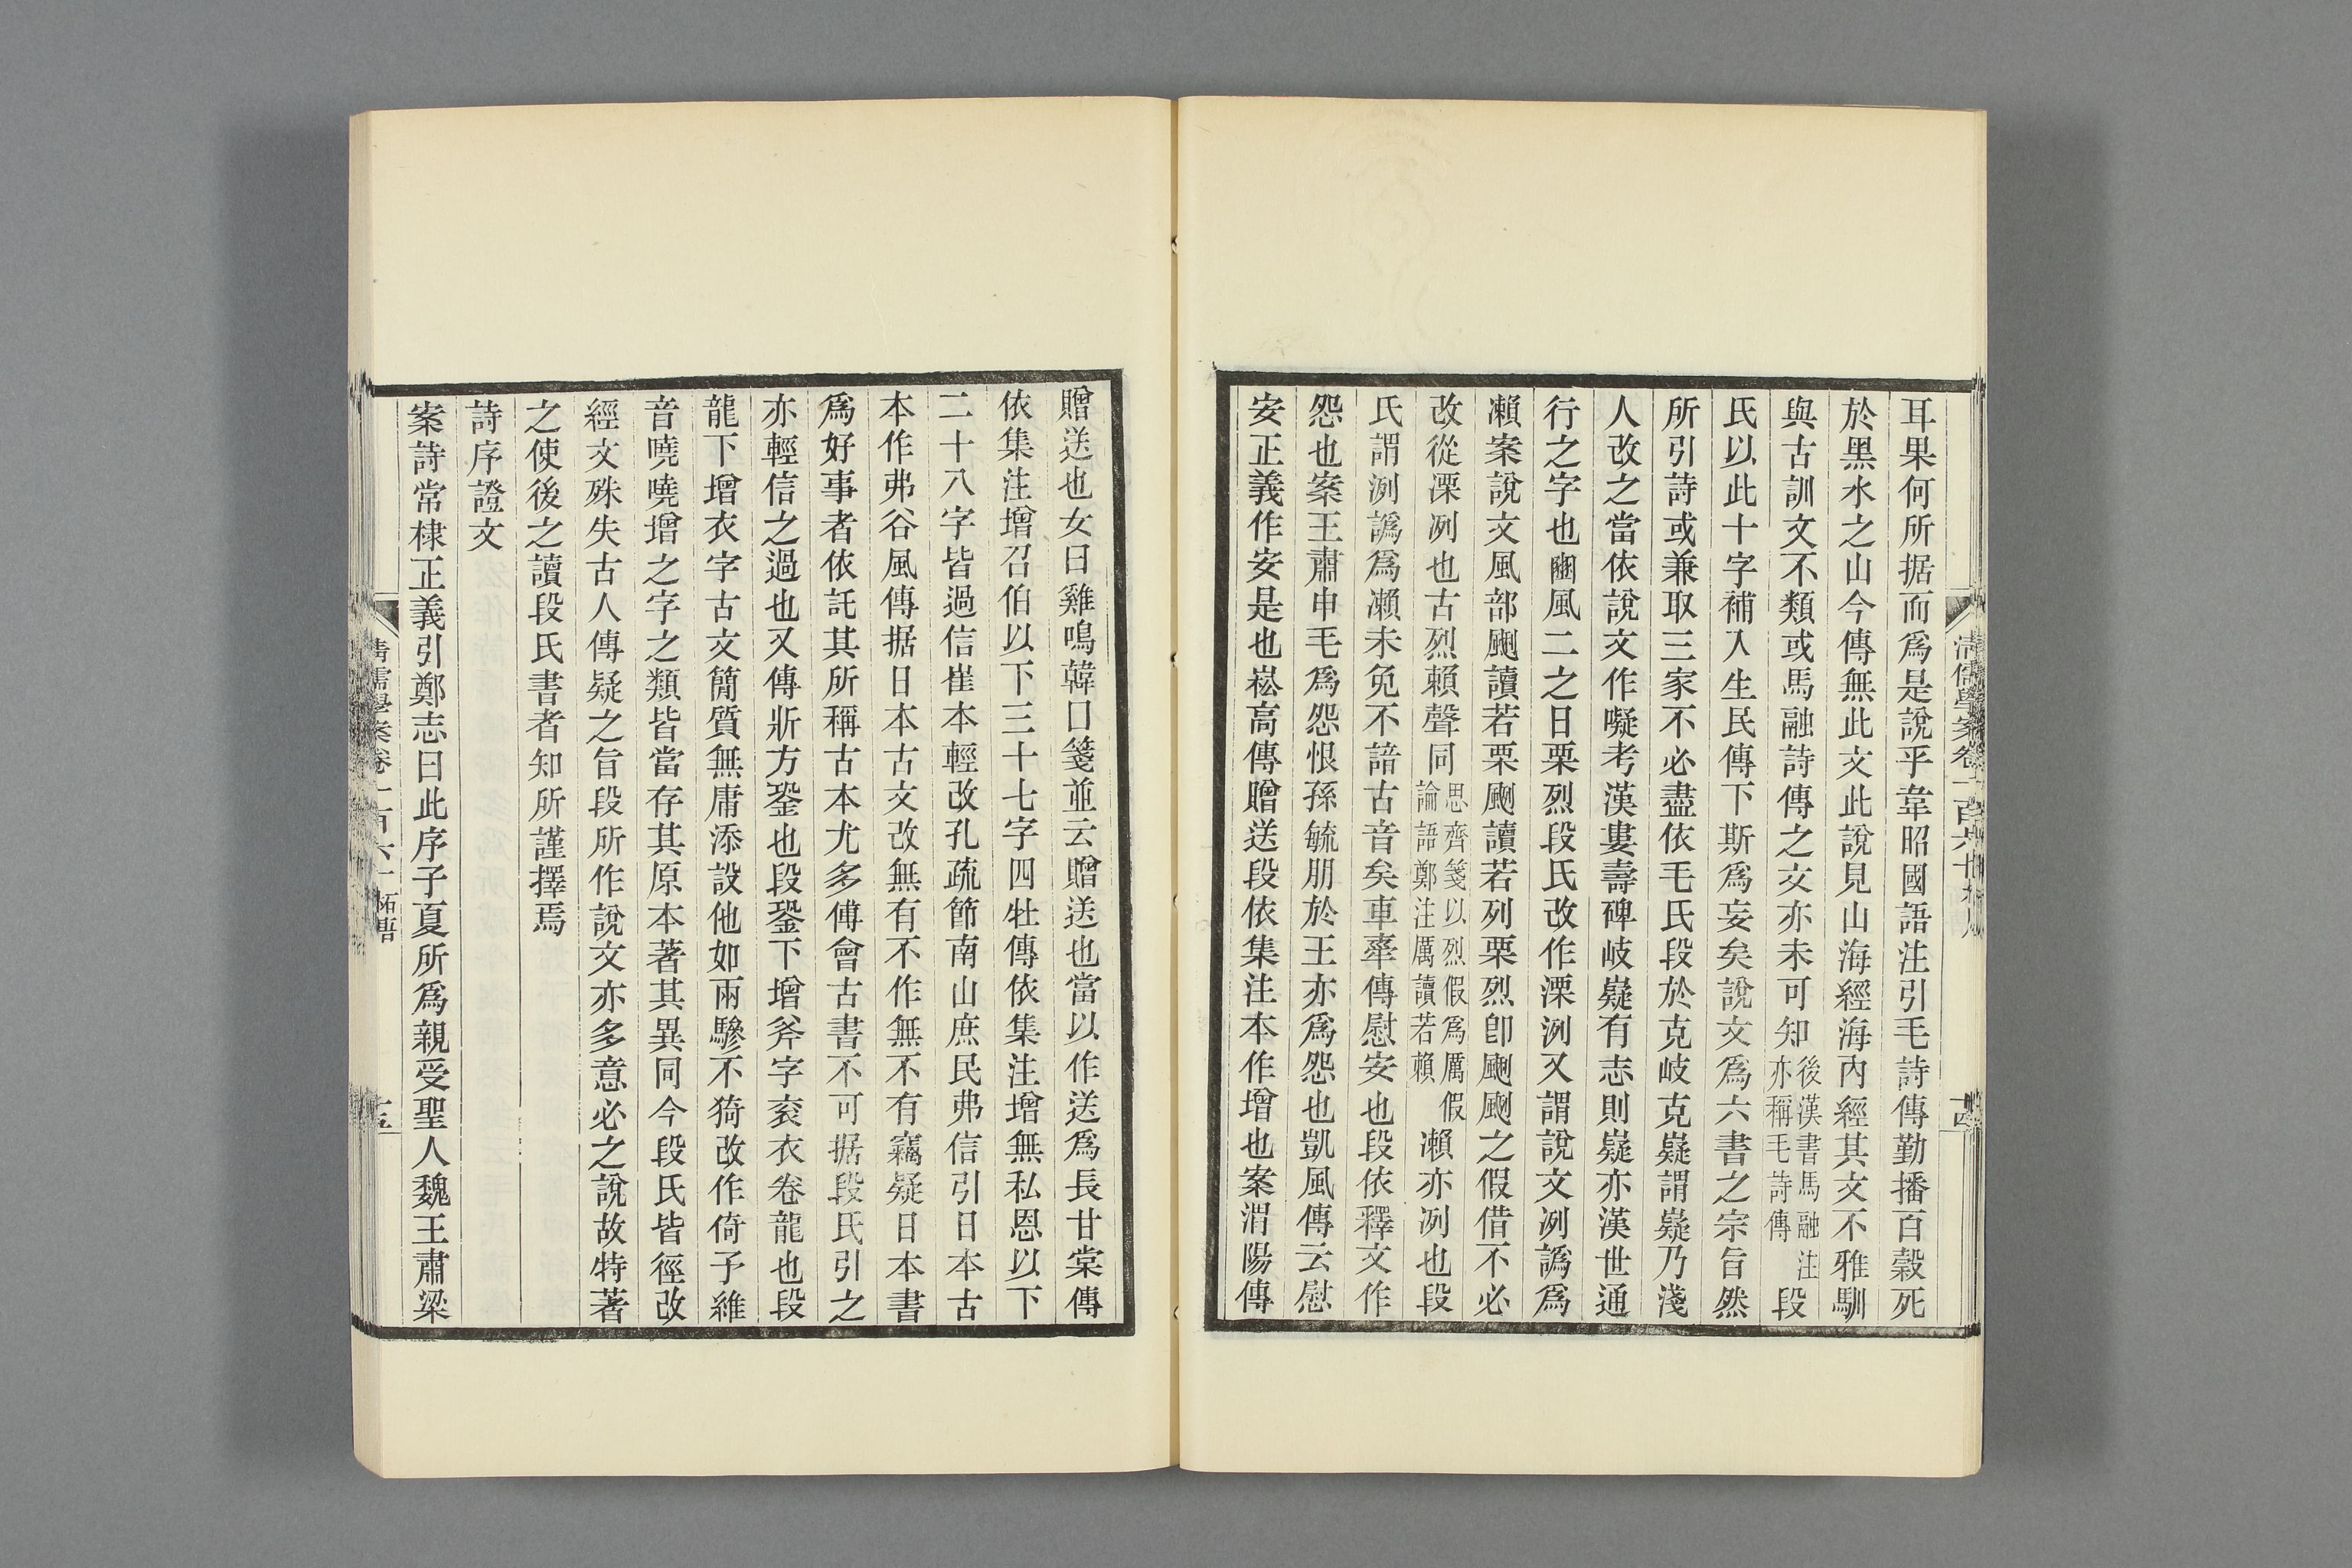 耳果何所据而爲是說乎韋昭國語注引毛詩傳勤播百穀死
於黑水之山今傳無此文此說見山海經海內經其文不雅馴
與古訓文不類或馬融詩傳之文亦未可知後漢書馬融注亦稱毛詩傳段
氏以此十字補入生民傳下斯爲妄矣說文爲六書之宗旨然
所引詩或兼取三家不必盡依毛氏段於克岐克嶷謂嶷乃淺
人改之當依說文作㘈考漢婁壽碑岐嶷有志則嶷亦漢世通
行之字也豳風二之日栗烈段氏改作溧冽又謂說文冽譌爲
瀨案說文風部颲讀若栗颲讀若列栗烈卽颲颲之假借不必
改從溧冽也古烈賴聲同思齊箋以烈假爲厲假論語鄭注厲讀若賴瀨亦冽也段
氏謂冽譌爲瀨未免不諳古音矣車舝傳慰安也段依釋文作
怨也案王肅申毛爲怨恨孫毓朋於王亦爲怨也凱風傳云慰
安正義作安是也崧高傳贈送段依集注本作增也案渭陽傳
清儒學案卷一百六十
十四
贈送也女曰雞鳴韓口箋並云贈送也當以作送爲長甘棠傳
依集注增召伯以下三十七字四牡傳依集注增無私恩以下
二十八字皆過信崔本輕改孔疏節南山庶民弗信引日本古
本作弗谷風傳据日本古文改無有不作無不有竊疑日本書
爲好事者依託其所稱古本尤多傅會古書不可据段氏引之
亦輕信之過也又傳斨方銎也段銎下增斧字衮衣卷龍也段
龍下增衣字古文簡質無庸添設他如兩驂不猗改作倚予維
音嘵嘵增之字之類皆當存其原本著其異同今段氏皆徑改
經文殊失古人傳疑之旨段所作說文亦多意必之說故特著
之使後之讀段氏書者知所謹擇焉
詩序證文
案詩常棣正義引鄭志曰此序子夏所爲親受聖人魏王肅梁
清儒學案卷一百六十
柘唐
十五